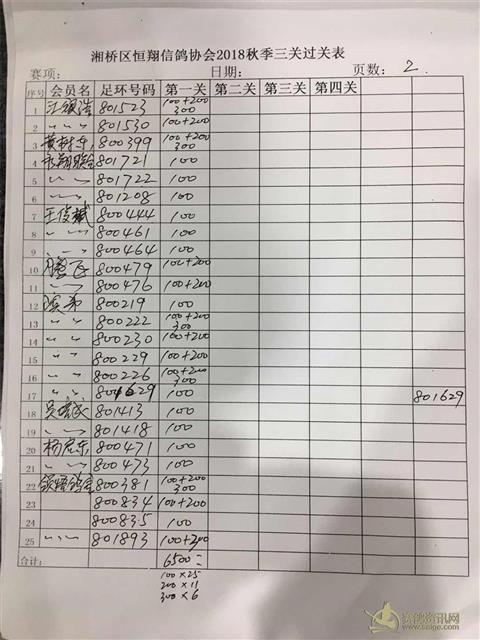 湘桥区恒翔信鸽协会2018秋季三关过关表
赛项: 日期: 页数: 2
序号 会员名 足环号码 第一关 第二关 第三关 第四关
1 江银浩 801523 100+200 300
2 〃 〃 801530 100+200
3 800399 100+200 300
4 801721 100
5 〃 〃 801722 100
6 〃 〃 801208 100
7 王俊斌 800444 100
8 〃 〃 800461 100
9 〃 〃 800464 100
10 腾飞 800479 100+200
11 〃 〃 800476 100+200
12 800219 100
13 〃 〃 800222 100+200 300
14 〃 〃 800230 100+200
15 〃 〃 800229 100+200
16 〃 〃 800226 100+200 300
17 〃 〃 801629 100 801629
18 801413 100
19 〃 〃 801418 100
20 杨宏东 800471 100
21 〃 〃 800473 100
22 800381 100+200 300
23 800834 100+200
24 800835 100
25 〃 〃 801893 100+200
合计: 6500
100×25
200×11
300×6
赛鸽资讯网
www.saige.com